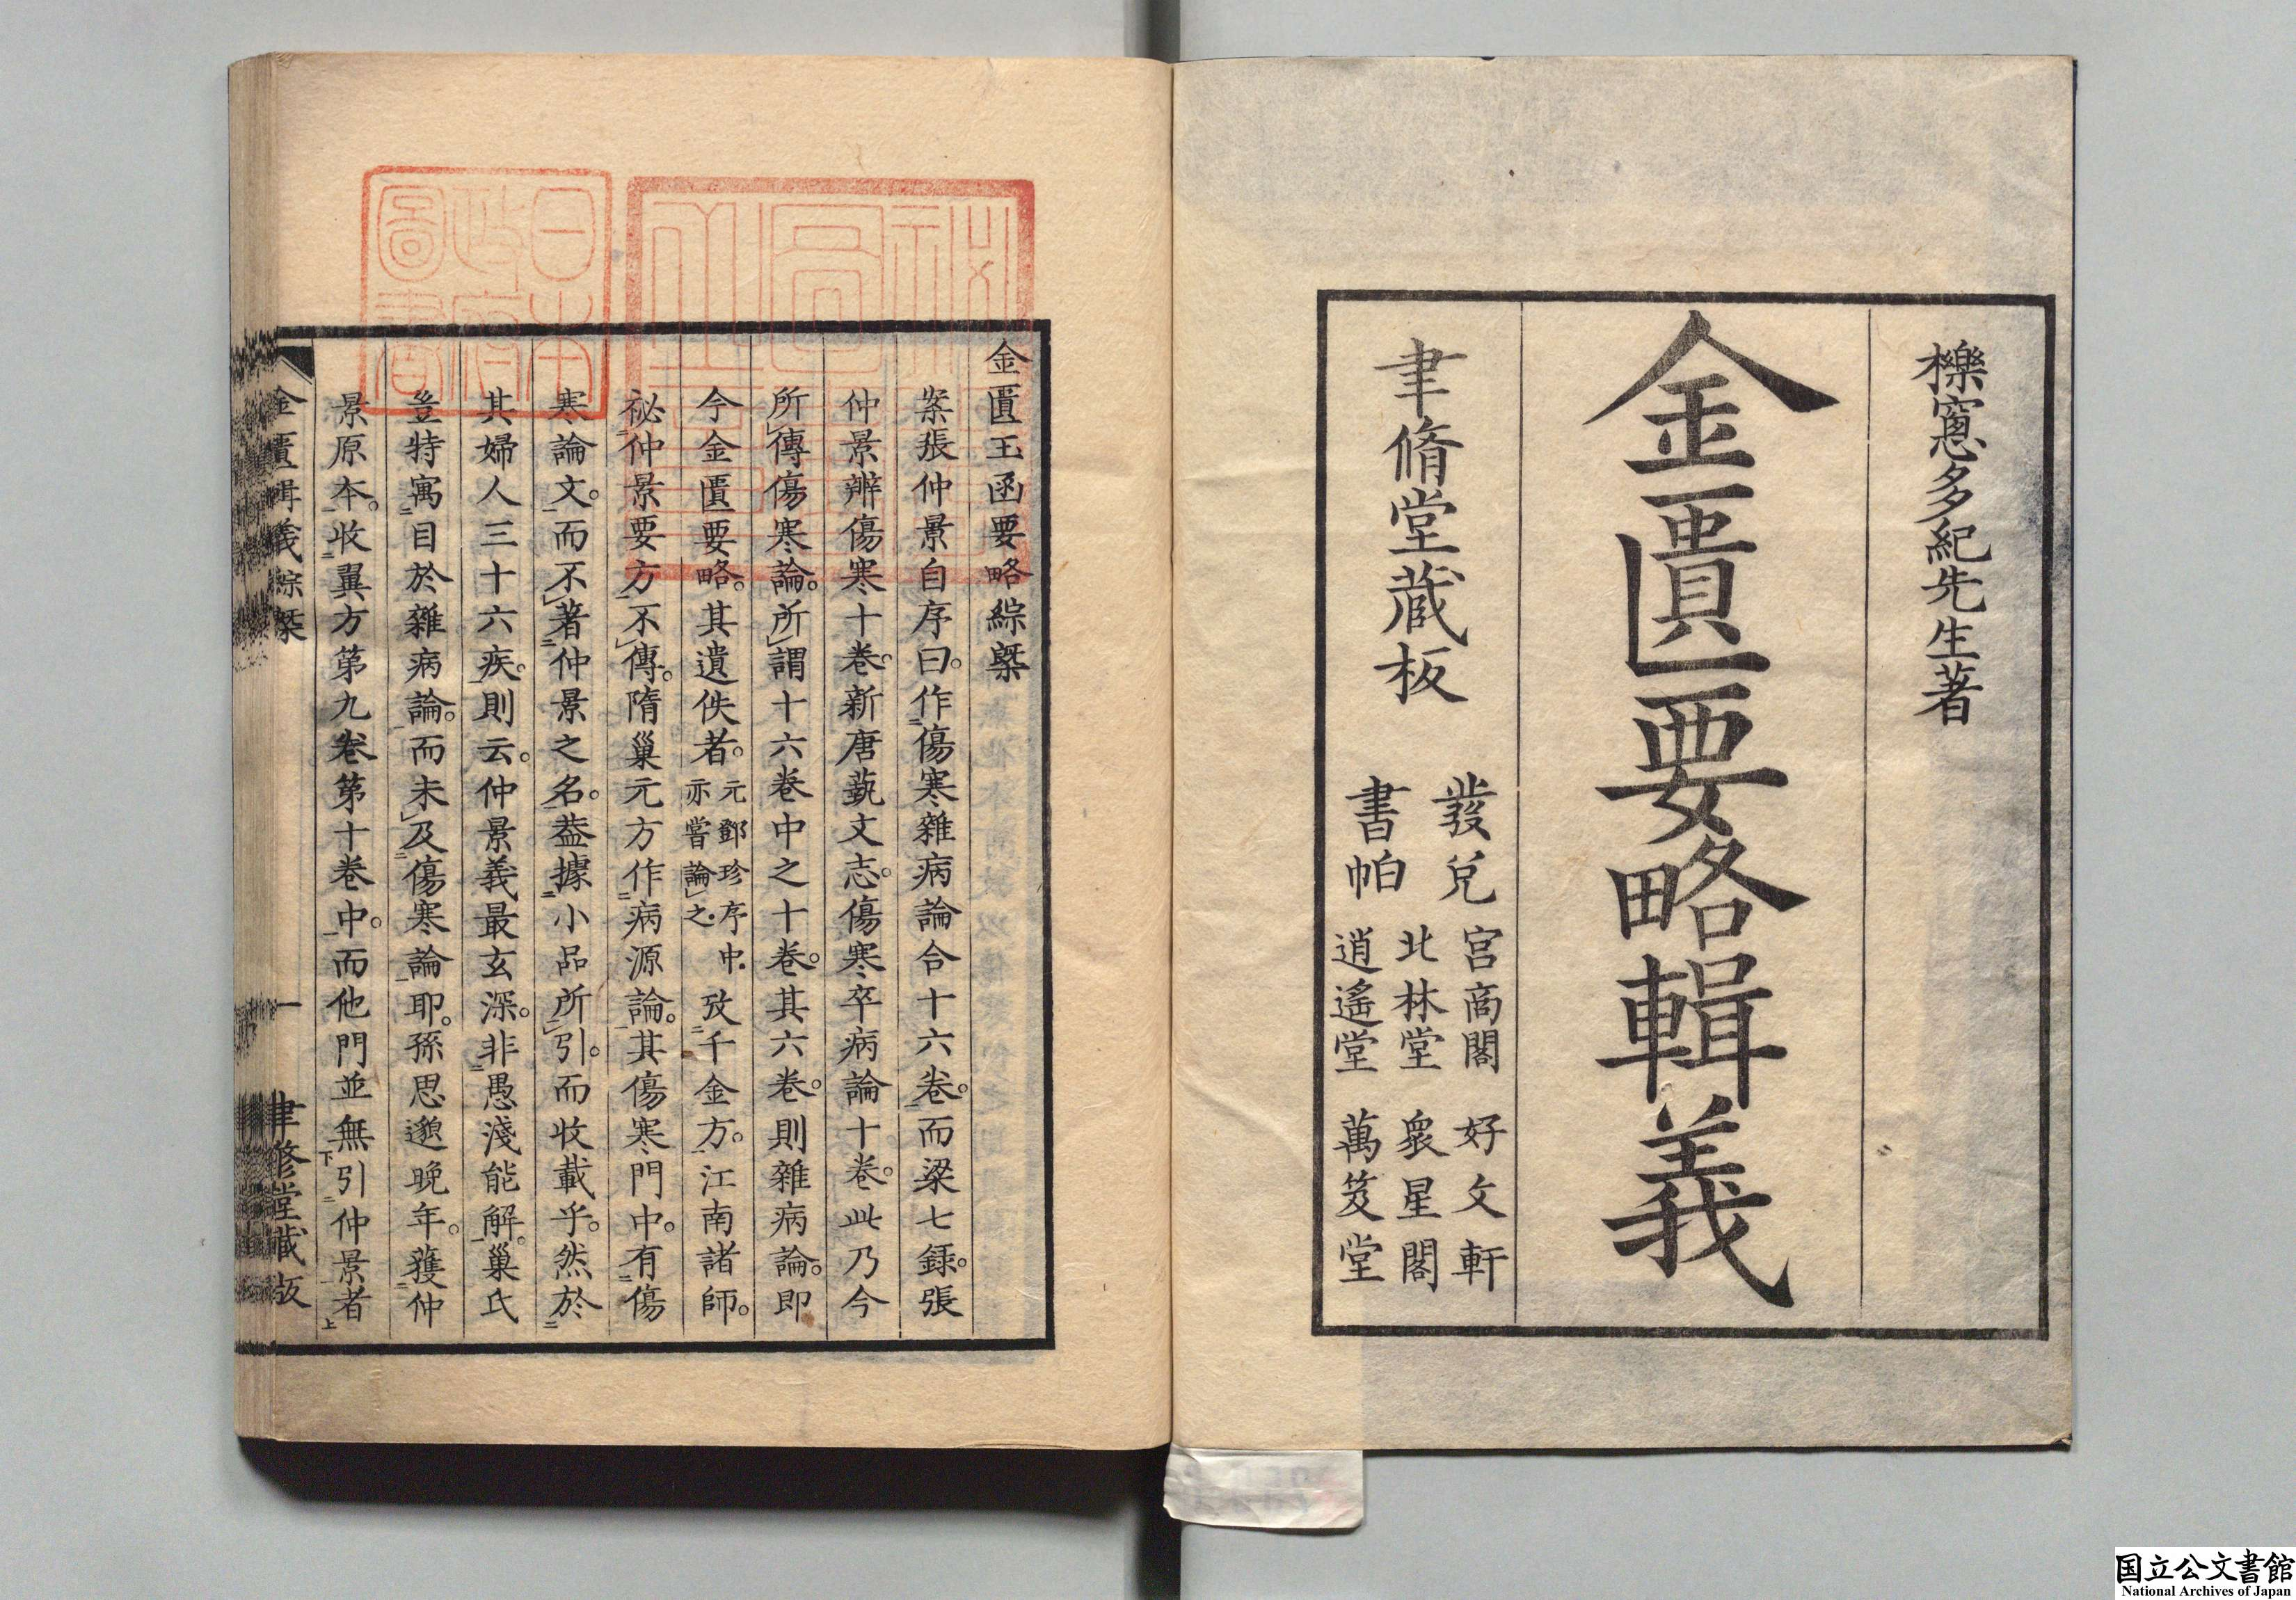 櫟窻多紀先生著
金匱要略輯義
聿脩堂蔵板
發兌
書帕
宮商閣 好文軒
北林堂 衆星閣
逍遙堂 萬笈堂
金匱玉函要略綜槩
案張仲景自序曰。作傷寒雜病論合十六卷。而梁七録。張
仲景辨傷寒十卷。新唐蓺文志。傷寒卒病論十卷。此乃今
所傳傷寒論。所謂十六卷中之十卷。其六卷。則雜病論。即
今金匱要略。其遺佚者。元鄧珍序中。亦嘗論之。攷千金方。江南諸師。
祕仲景要方不傳。隋巢元方作病源論。其傷寒門中。有傷
寒論文。而不著仲景之名。葢據小品所引。而收載乎。然於
其婦人三十六疾。則云。仲景義最玄深。非愚淺能解。巢氏
豈特寓目於雜病論。而未及傷寒論耶。孫思邈晚年。獲仲
景原本。收翼方第九卷第十卷中。而他門並無引仲景者
金匱輯義綜槩 一 聿修堂藏版
日本政府圖書
国立公文書館
National Archives of Japan